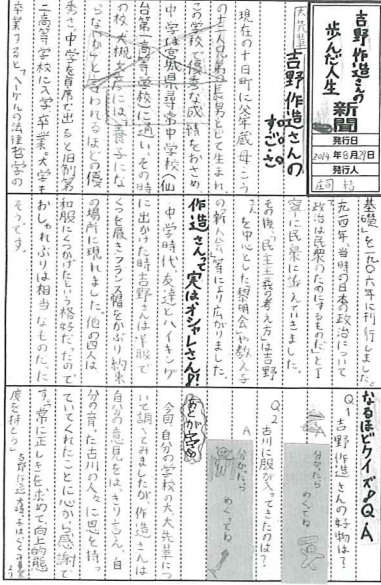 吉野作造さんの
歩んだ人生
新聞
発行日
2014年8月29日
発行人
大先輩
吉野作造さんの
すごさ
現在の十日町に父年蔵母こう
の十二人兄弟の長男として生まれ、
この学校で優秀な成績をおさめ、
中学は宮城県尋常中学校(仙
台第一高等学校)に通い、その時
の校長大槻文彦には、養子にな
らないかと言われるほどの優
秀さ。中学を首席で出ると旧制第
二高等学校に入学。卒業、大学も
卒業すると、「ヘーゲルの法律哲学の
基礎」を一九〇六年に刊行しました。
一九一四年、当時の日本の政治について
「政治は民衆のためにするものだ」と丁
寧に民衆に訴えていきました。
その後、「民主主義の考え方」は吉野
さんを中心とした黎明会や教え子
の「新人会」等により広がりました。
作造さんって実はオシャレさん♪
中学時代、友達とハイキング
に出かけた時吉野さんは洋服で
くつを履きフランス帽をかぶり約束
の場所に現れました。他の四人は
和服にくつかげたという格好だったので
おしゃれぶりは相当なものだった
そうです。
なるほどクイズ♪Q&A
Q1 吉野作造さんの好物は?
A
分かったら
めくってね
Q2 古川に服が入ってきたのは?
A
分かったら
めくってね
あとがき
今回、自分の学校の大大先輩につ
いて調べてみましたが、作造さんは
自分の意見をはっきり言え、自
分の育った古川の人々に思を持っ
ていてくれたことに心から感謝で
す。「常に正しきを求めて向上的態
度を持つ」